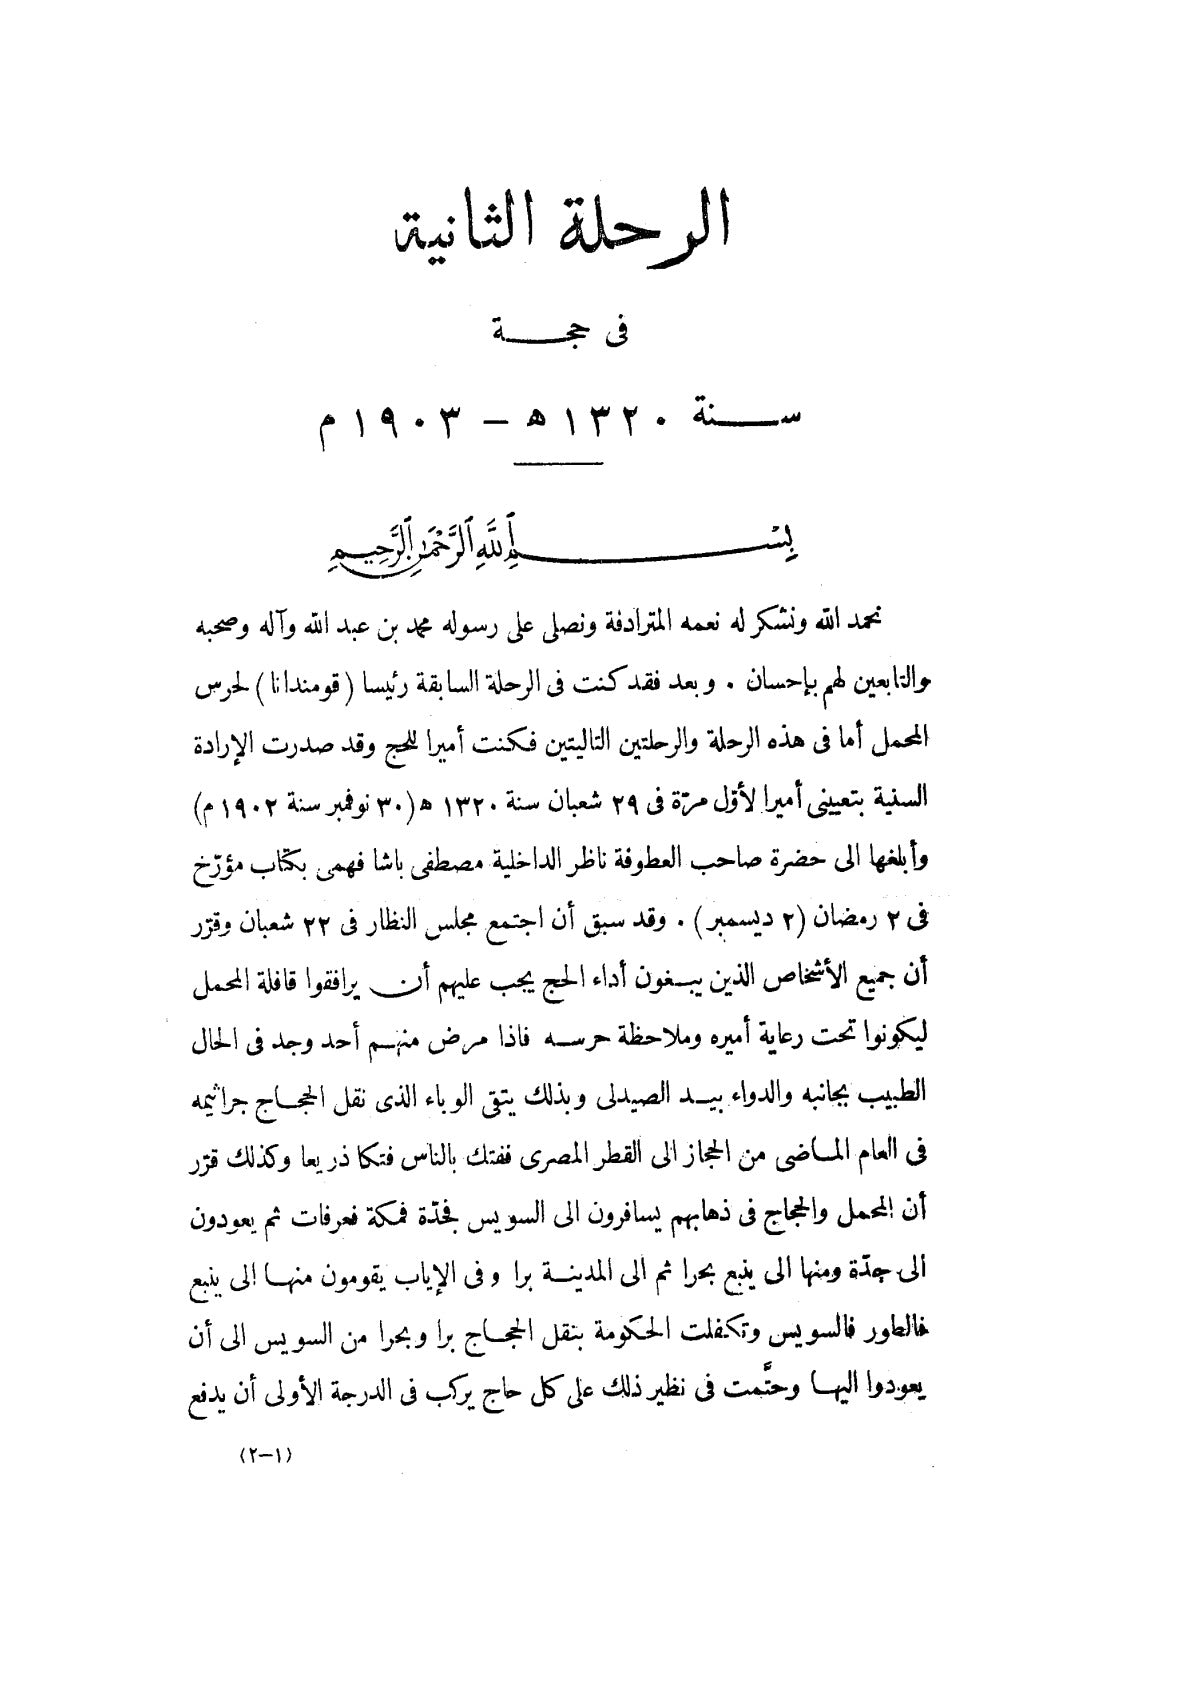 الرحلة الثانية
فى حجـــة
ســـنة ١٣٢٠ ھ – ١٩٠٣ م
بِســـمِ ٱللَّهِ ٱلرَّحْمَٰنِ ٱلرَّحِيمِ
نحمد الله ونشكر له نعمه المترادفة ونصلى على رسوله محمد بن عبد الله وآله وصحبه
والتابعين لهم بإحسان . وبعد فقد كنت فى الرحلة السابقة رئيسا (قومندانا) لحرس
المحمل أما فى هذه الرحلة والرحلتين التاليتين فكنت أميرا للحج وقد صدرت الإرادة
السنية بتعيينى أميرا لأوّل مرّة فى ٢٩ شعبان سنة ١٣٢٠ ھ (٣٠ نوفمبر سنة ١٩٠٢ م)
وأبلغها الى حضرة صاحب العطوفة ناظر الداخلية مصطفى باشا فهمى بكتاب مؤرّخ
فى ٢ رمضان (٢ ديسمبر) . وقد سبق أن اجتمع مجلس النظار فى ٢٢ شعبان وقرّر
أن جميع الأشخاص الذين يبـغون أداء الحج يجب عليهم أن يرافقوا قافلة المحمل
ليكونوا تحت رعاية أميره وملاحظة حرسـه فاذا مرض منهـم أحد وجد فى الحال
الطبيب بجانبه والدواء بيـد الصيدلى وبذلك يتقى الوباء الذى نقل الحجـاج جراثيمه
فى العام المـاضى من الحجاز الى القطر المصرى ففتك بالناس فتكا ذريعا وكذلك قرّر
أن المحمل والحجاج فى ذهابهم يسافرون الى السويس فجدّة فمكة فعرفات ثم يعودون
الى جدّة ومنها الى ينبع بحرا ثم الى المدينـة برا وفى الإياب يقومون منهـا الى ينبع
فالطور فالسويس وتكفلت الحكومة بنقل الحجـاج برا وبحرا من السويس الى أن
يعودوا اليهـا وحتَّمت فى نظير ذلك على كل حاج يركب فى الدرجة الأولى أن يدفع
(١–٢)